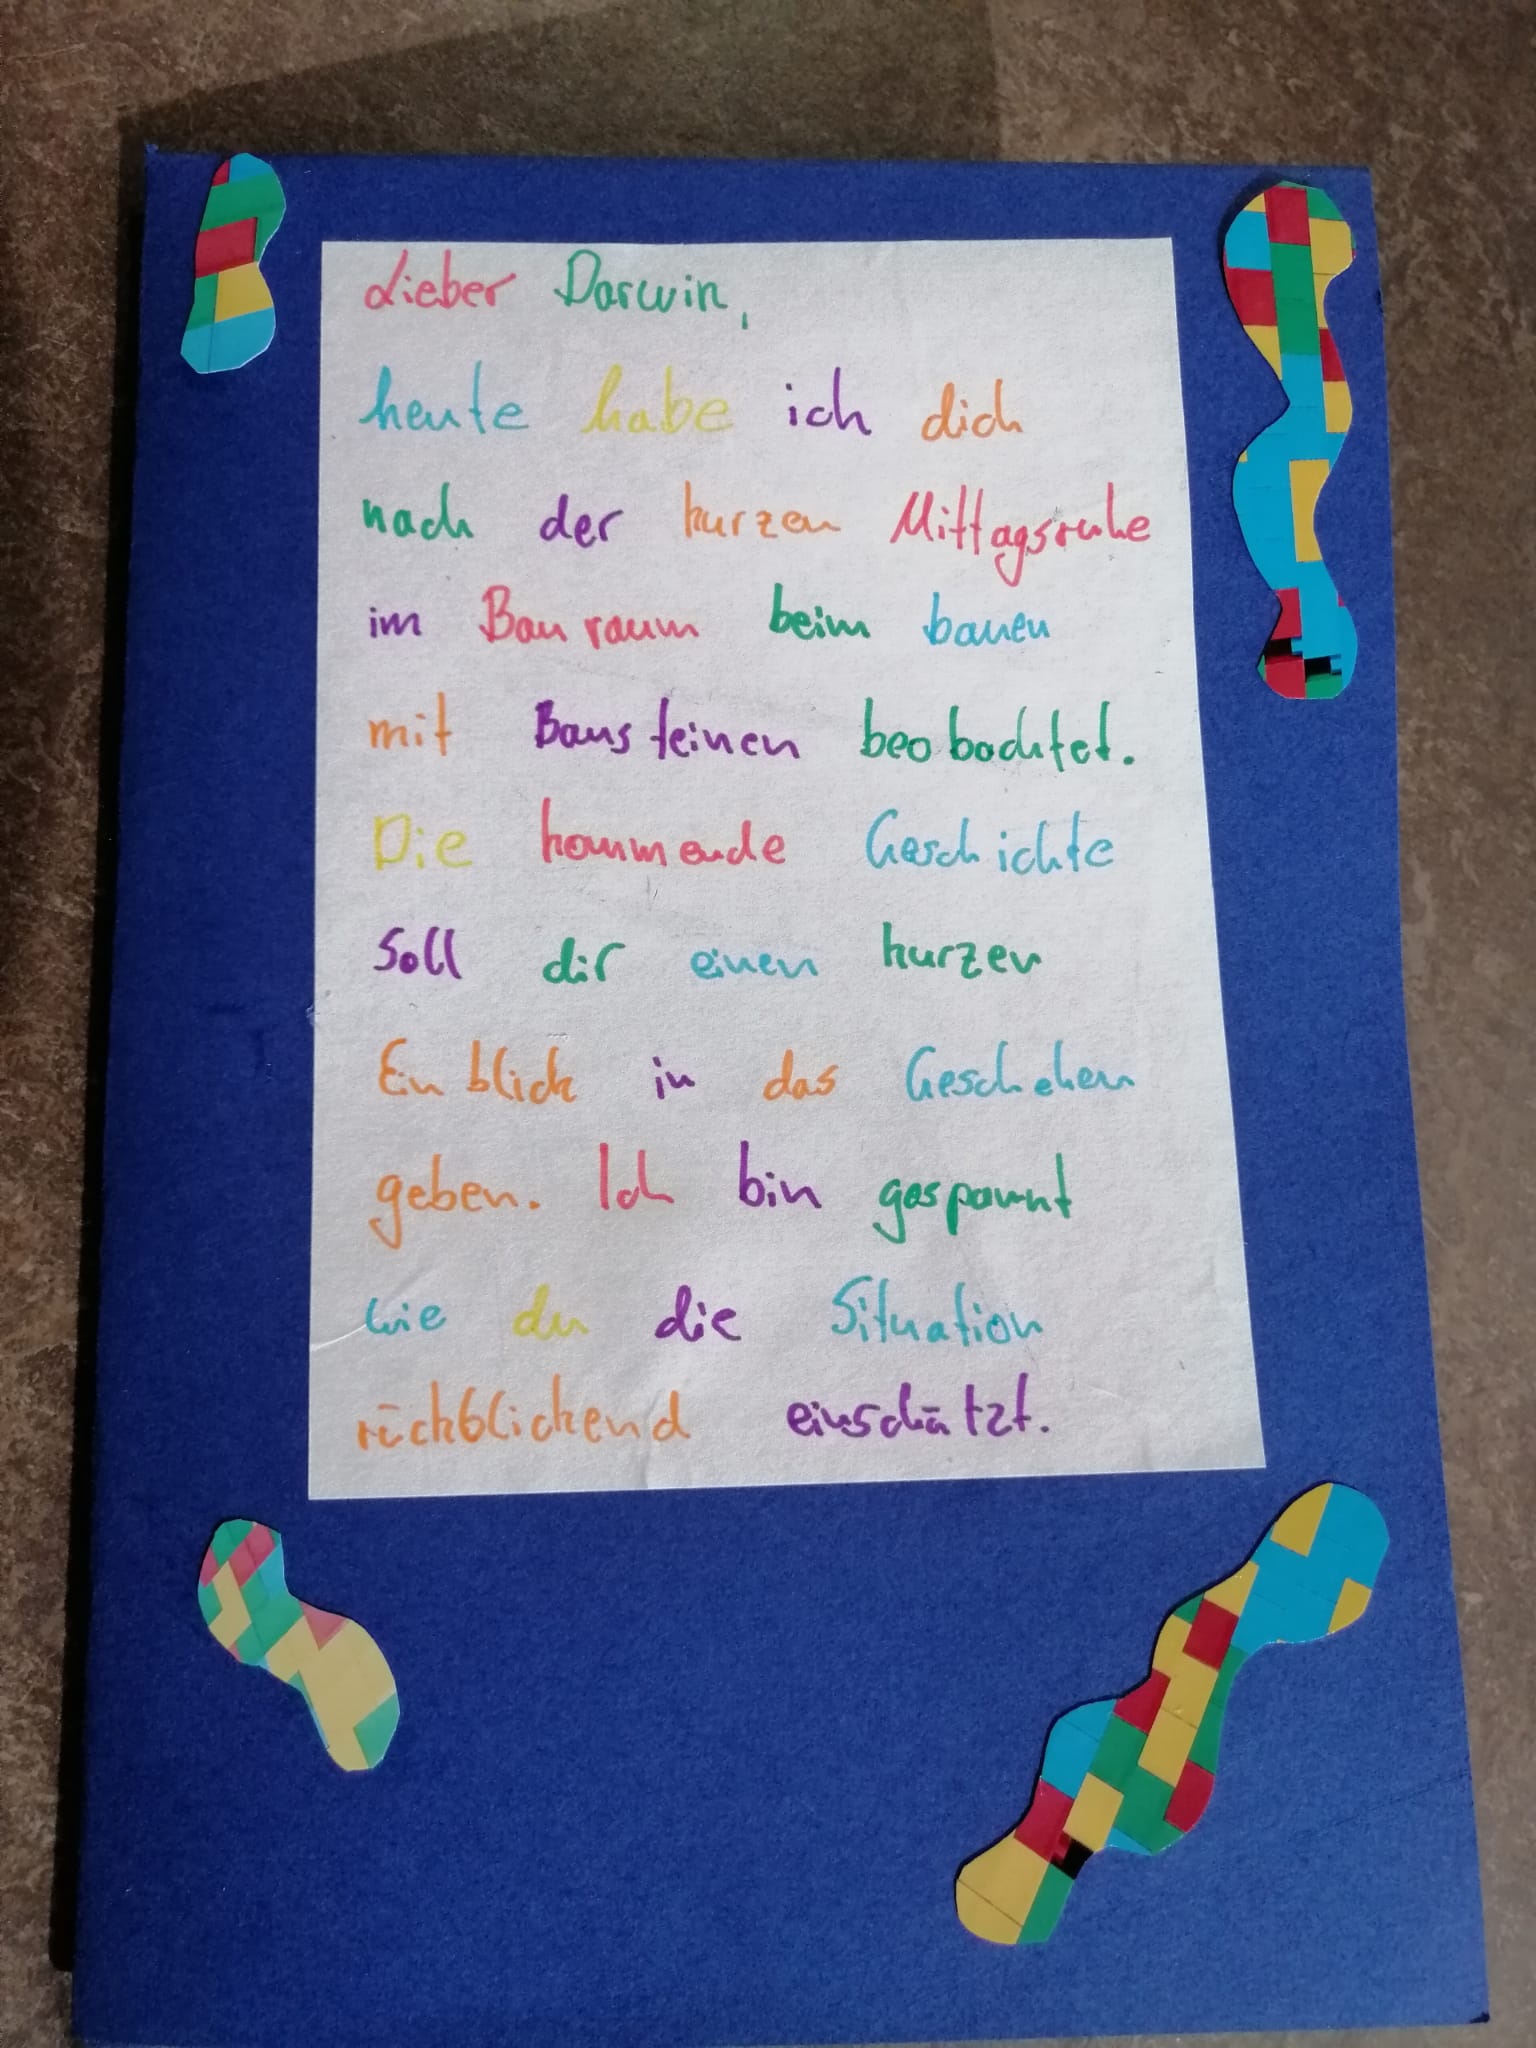 Lieber Darwin,
heute habe ich dich
nach der kurzen Mittagsruhe
im Bauraum beim bauen
mit Bausteinen beobachtet.
Die kommende Geschichte
soll dir einen kurzen
Einblick in das Geschehen
geben. Ich bin gespannt
wie du die Situation
rückblickend einschätzt.